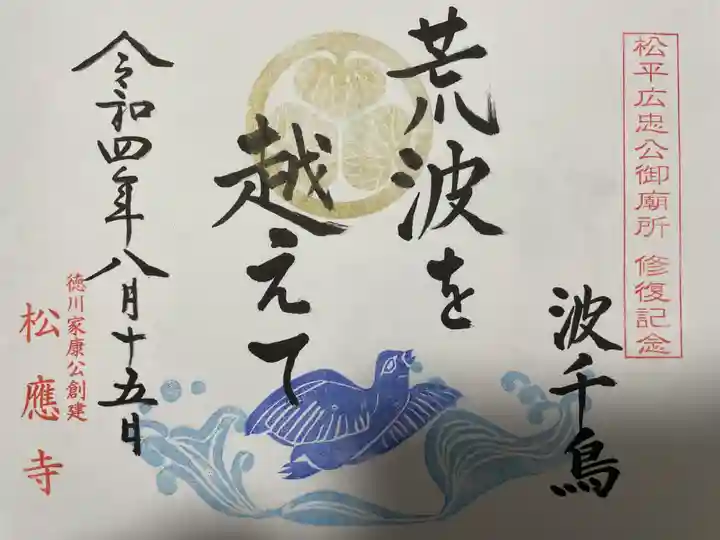 松平広忠公御廟所 修復記念
波千鳥
荒波を
越えて
令和四年八月十五日
徳川家康公創建
松應寺